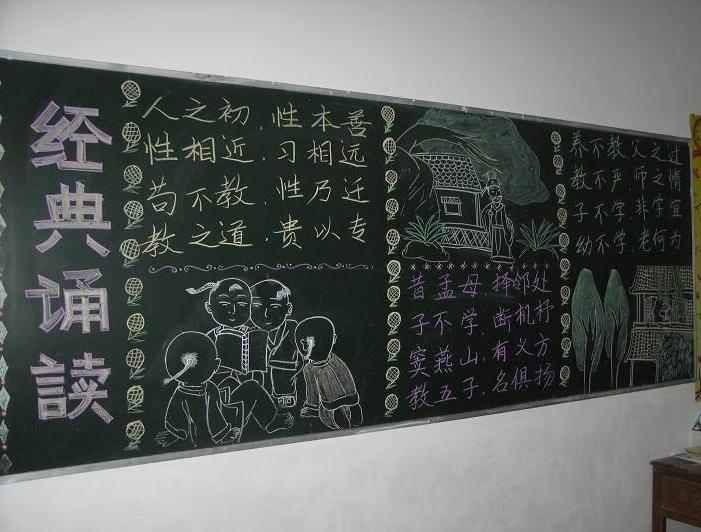 经典诵读
人之初,性本善
性相近.习相远
苟不教.性乃迁
教之道,贵以专
昔孟母.择邻处
子不学.断机杼
窦燕山,有义方
教五子,名俱扬
养不教父之过
教不严.师之情
子不学.非学宜
幼不学,老何为